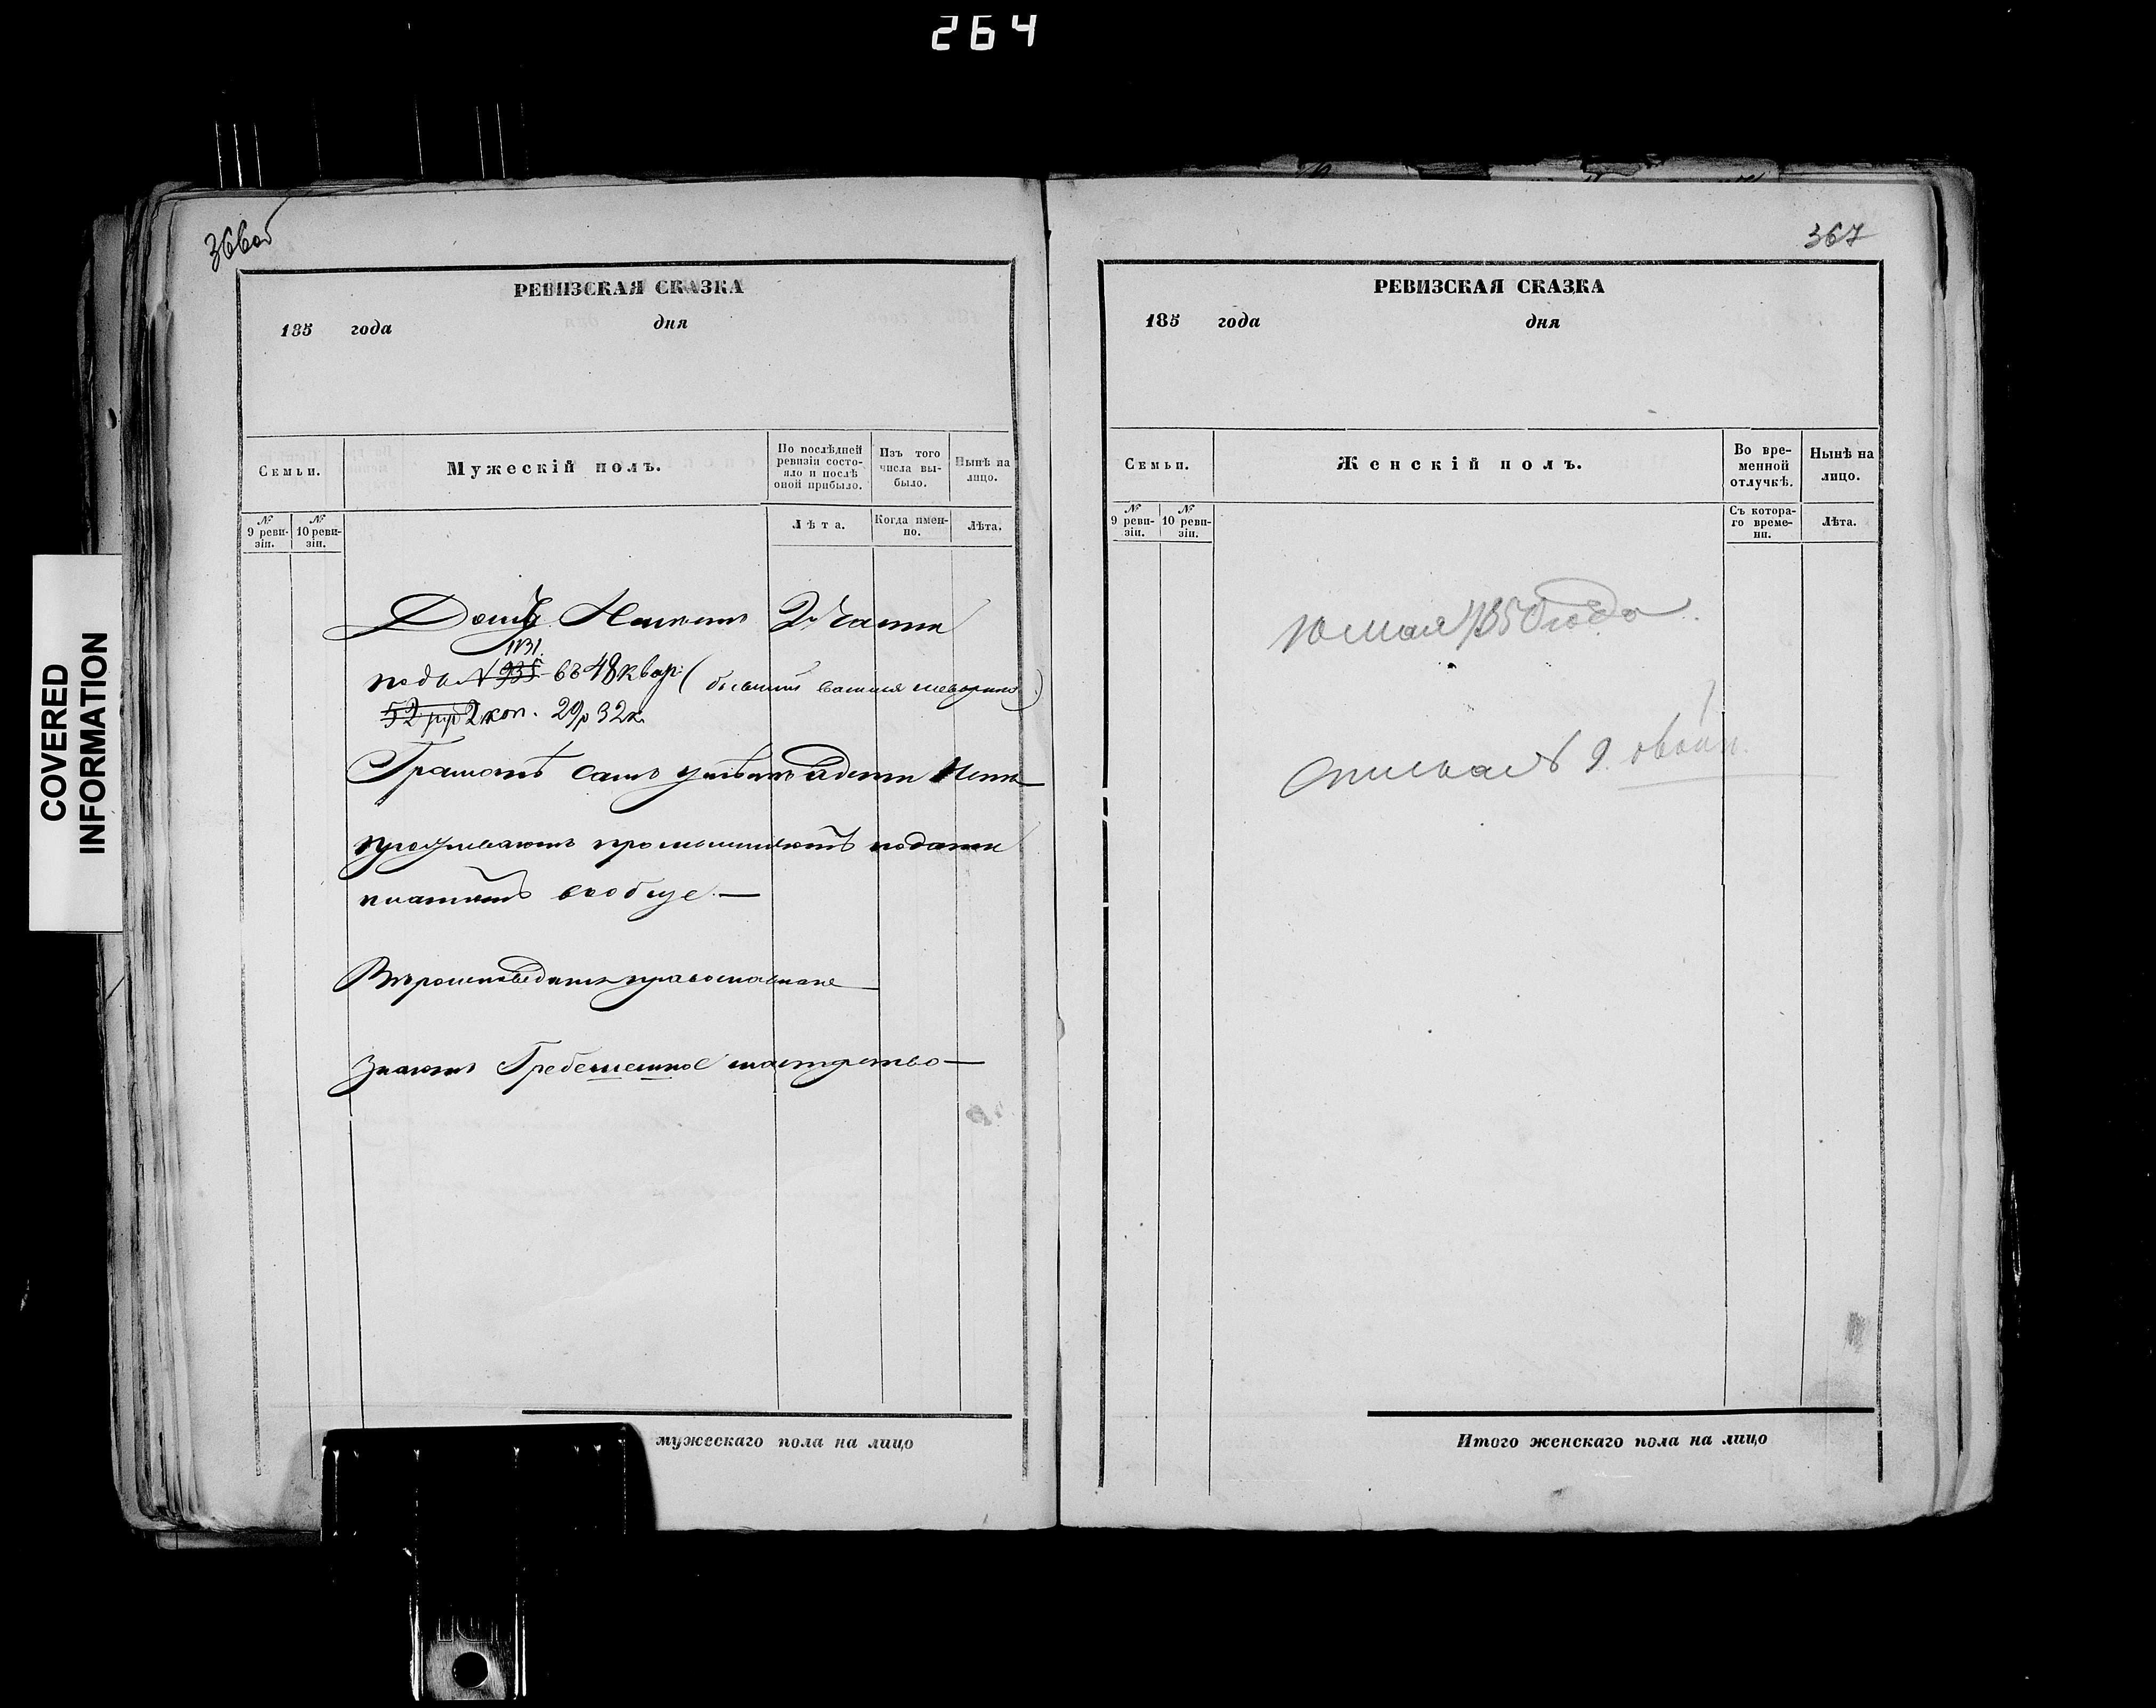 264
COVERED
INFORMATION
366об
РЕВИЗСКАЯ СКАЗКА
185 года дня
Семьи.
Мужескій полъ.
По послѣдней ревизіи состояло и послѣ оной прибыло.
Изъ того числа выбыло.
Нынѣ на лицо.
№ 9 ревизіи.
№ 10 ревизіи.
Лѣта.
Когда именно.
Лѣта.
Домъ 2й Части
1131.
подъ № 935 въ 48 квар: (бывшій
52 р 2 коп. 29 р 32 к.
Грамотѣ самъ умѣетъ а дети Нетъ
проживаютъ промышляютъ подати
платятъ вообще.—
Вѣроисповеданія православнаго
Знаютъ Гребеш­енное мастерство—
мужескаго пола на лицо
367
РЕВИЗСКАЯ СКАЗКА
185 года дня
Семьи.
Женскій полъ.
Во временной отлучкѣ.
Нынѣ на лицо.
№ 9 ревизіи.
№ 10 ревизіи.
Съ котораго времени.
Лѣта.
10 мая 1850 года.
9.
Итого женскаго пола на лицо